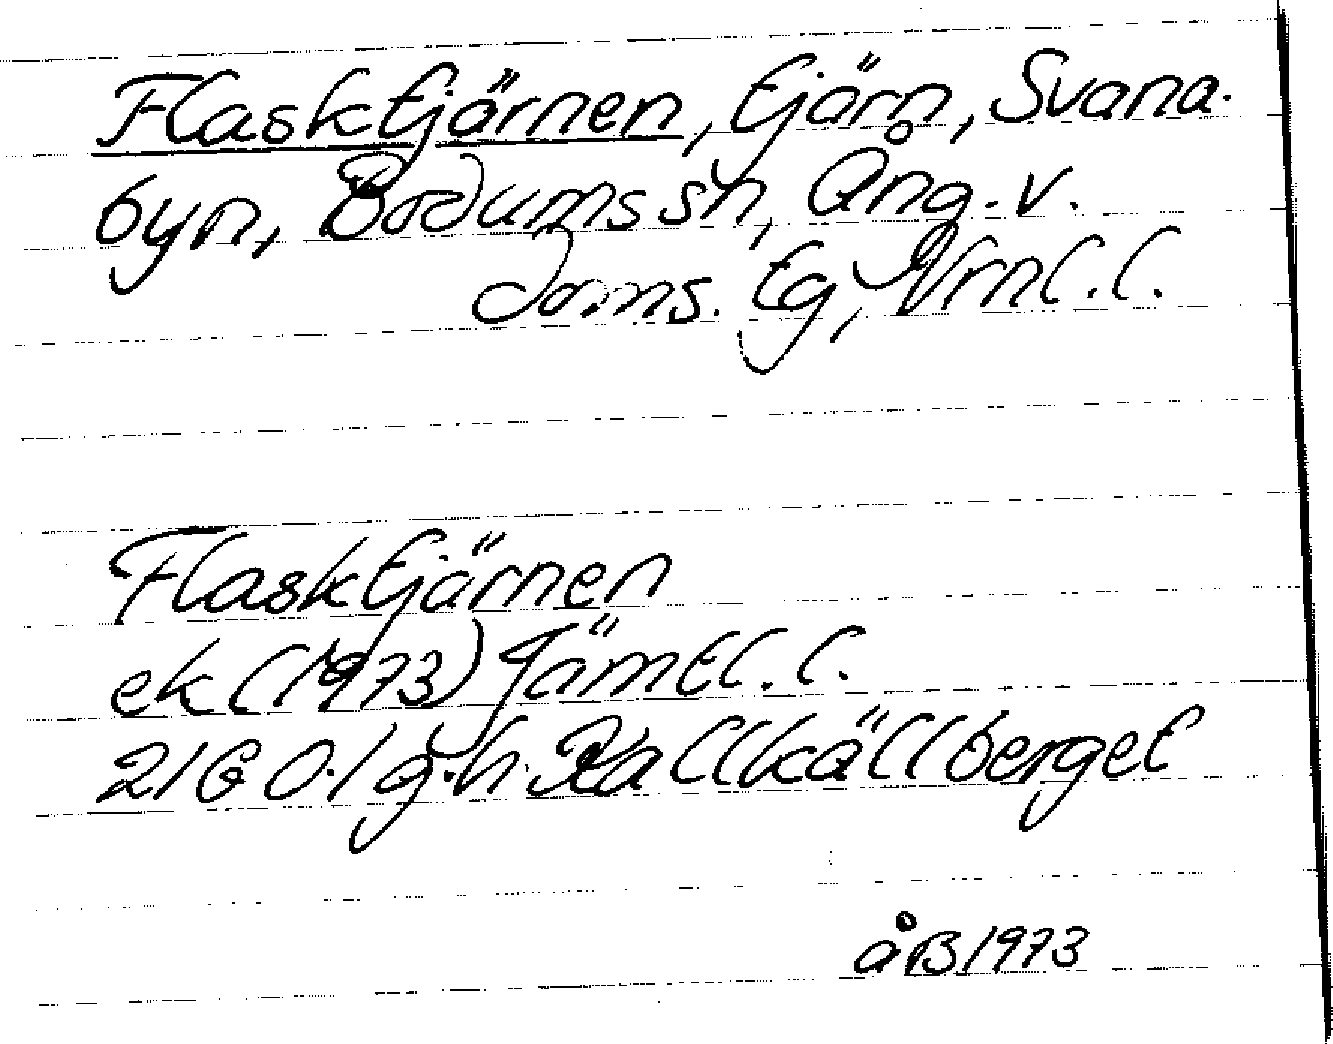 Flasktjärnen, tjärn, Svana-
byn, Bodums sn, Ång. v.
doms. tg, Vrnl. l.
Flasktjärnen
ek (1973) Jämtl. l.
21G 0./g.h. Kallkällberget
åB 1973